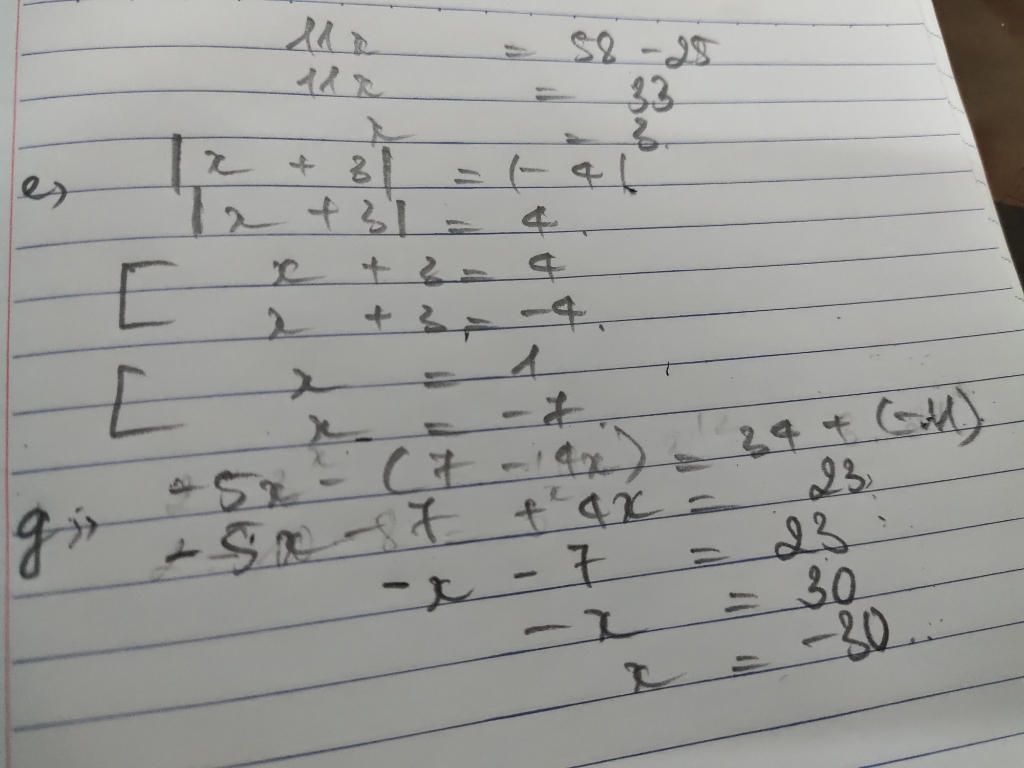 11x = 58 - 25
11x = 33
x = 3.
e, |x + 3| = |-4|
|x + 3| = 4.
[ x + 3 = 4
x + 3 = -4.
[ x = 1
x = -7
g, -5x - (7 - 4x) = 34 + (-11)
-5x - 7 + 4x = 23
-x - 7 = 23
-x = 30
x = -30